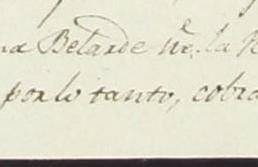 na Belarde Ne. la
por lo tanto, cobra